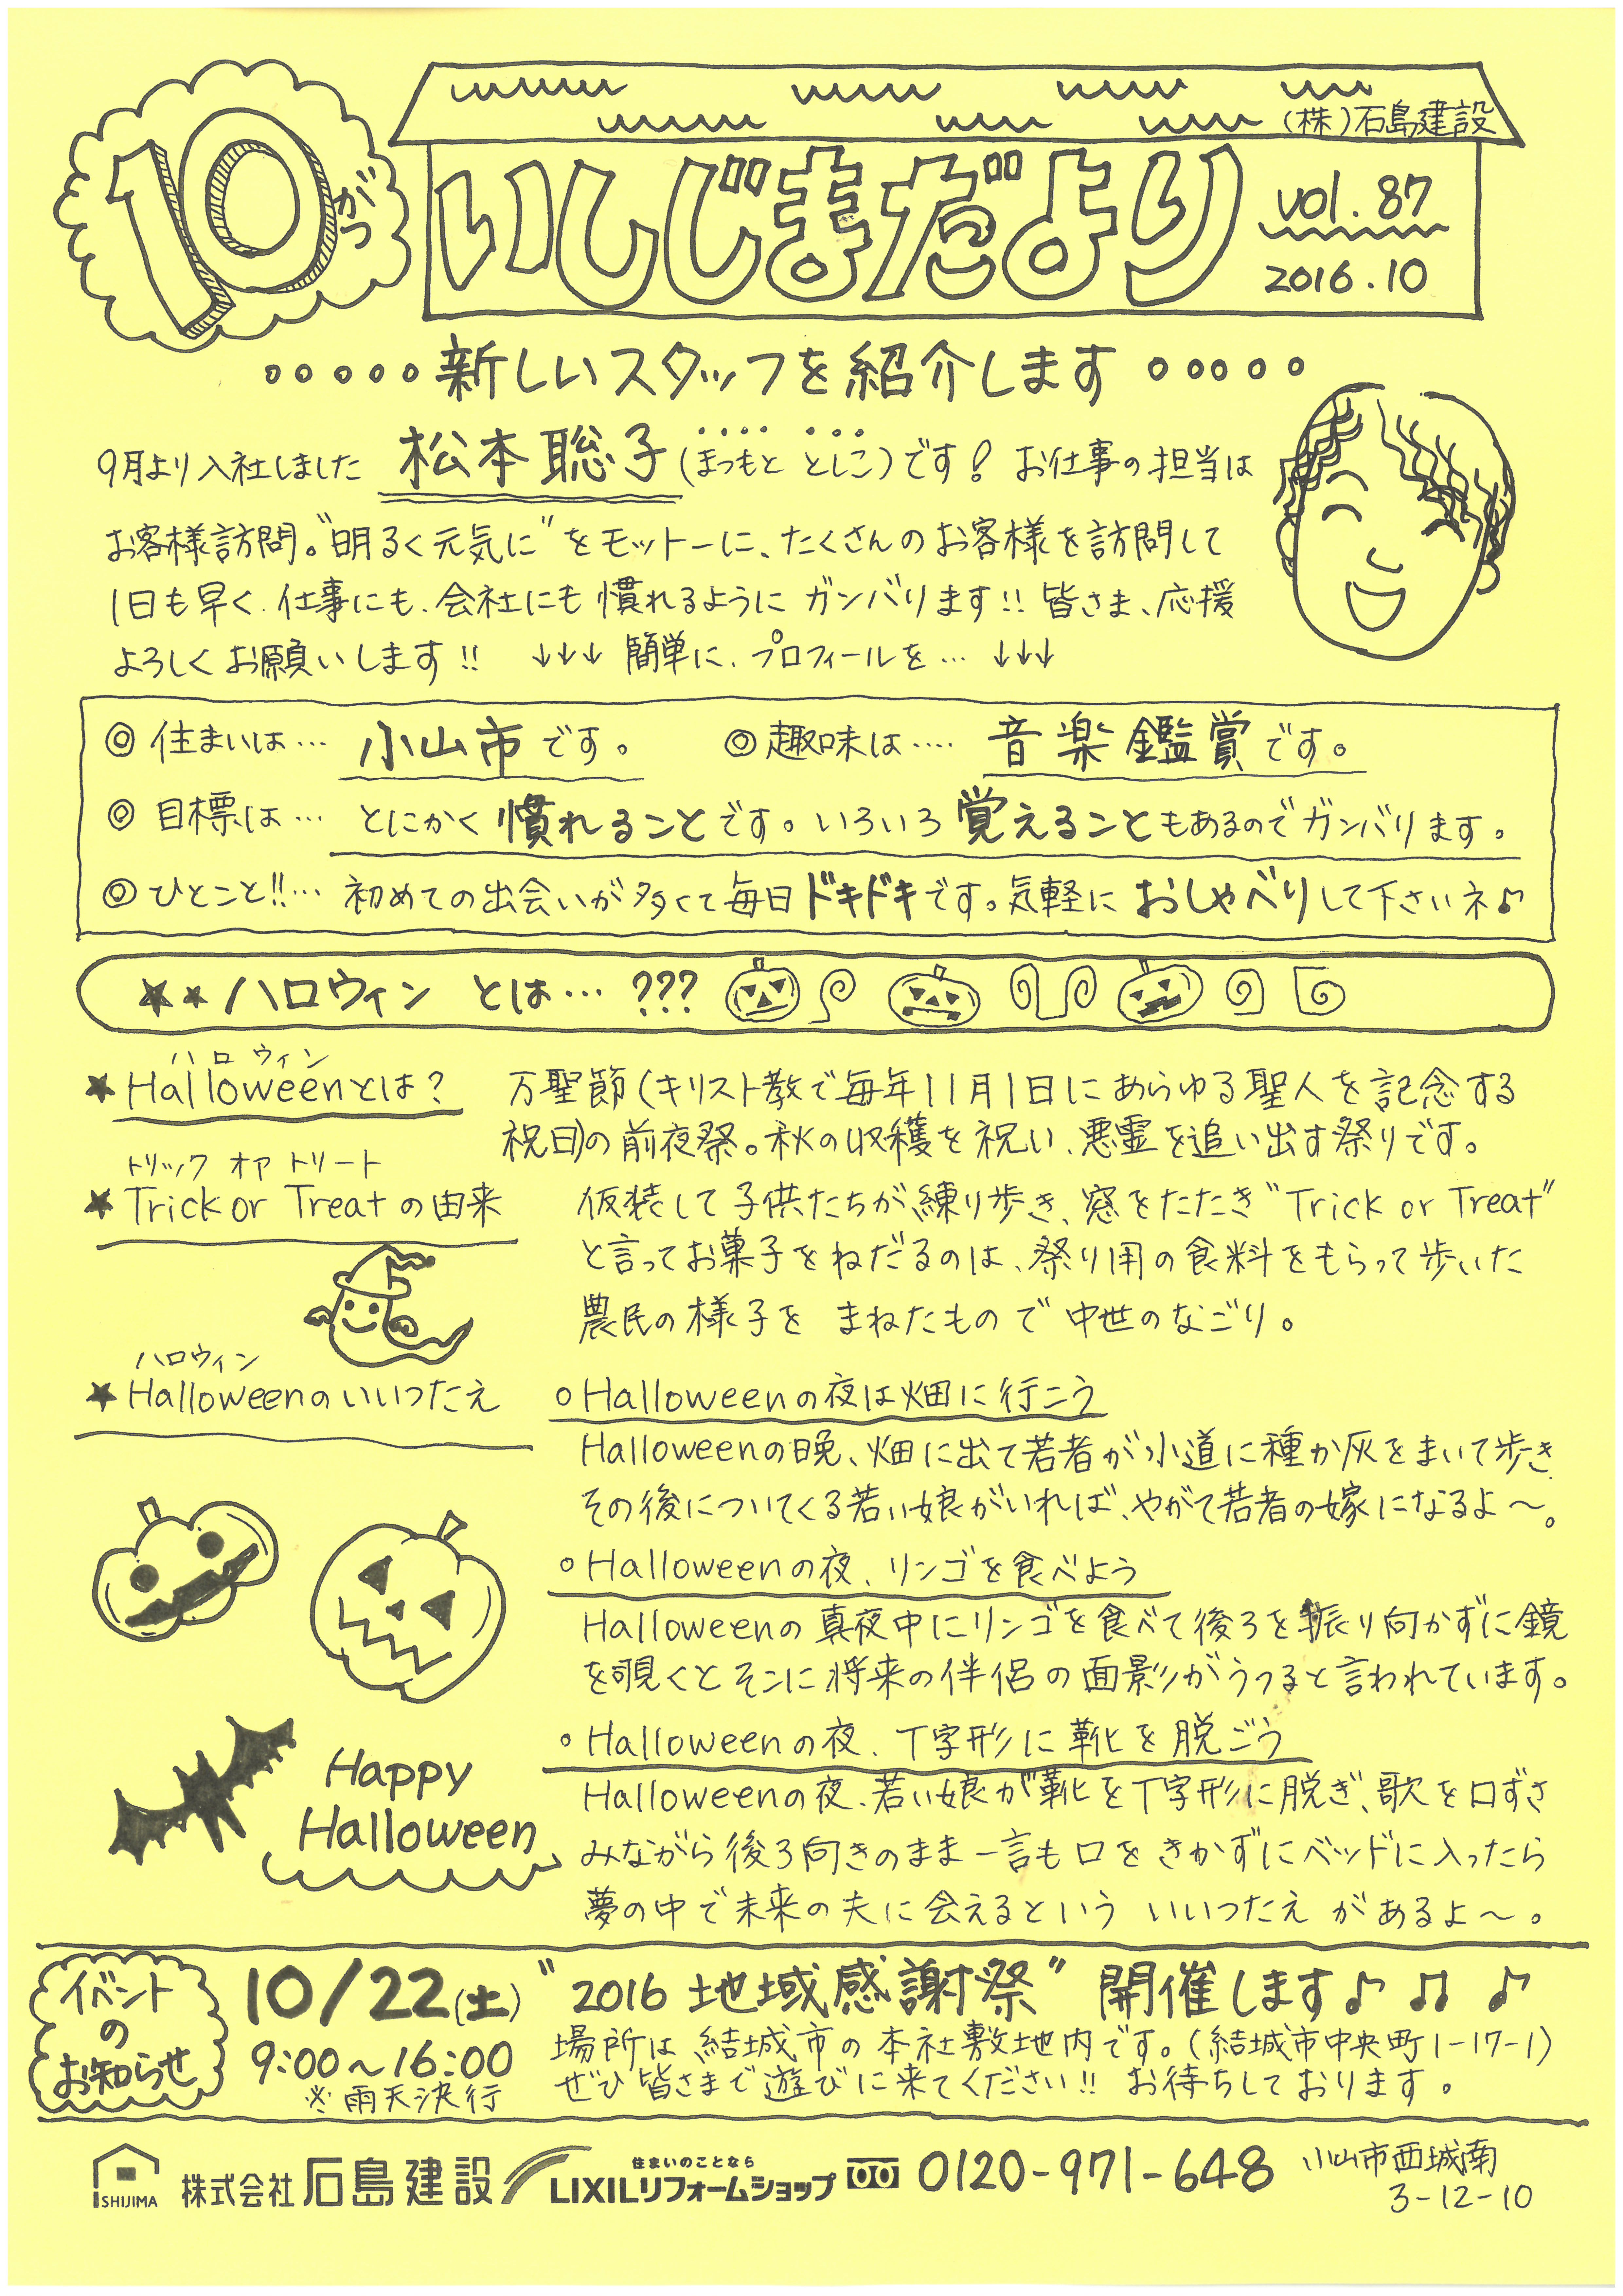 10がつ
(株)石島建設
いしじまだより
vol.87
2016.10
新しいスタッフを紹介します
9月より入社しました 松本聡子(まつもと としこ)です! お仕事の担当は
お客様訪問。"明るく元気に"をモットーに、たくさんのお客様を訪問して
1日も早く、仕事にも、会社にも慣れるように ガンバります!! 皆さま、応援
よろしくお願いします!! ↓↓↓ 簡単に、プロフィールを… ↓↓↓
◎ 住まいは… 小山市です。 ◎ 趣味は…. 音楽鑑賞です。
◎ 目標は… とにかく慣れることです。いろいろ覚えることもあるのでガンバります。
◎ ひとこと!!… 初めての出会いが多くて毎日ドキドキです。気軽におしゃべりして下さいネ♪
★★ハロウィン とは… ???
ハロウィン
★Halloweenとは?
万聖節(キリスト教で毎年11月1日にあらゆる聖人を記念する
祝日)の前夜祭。秋の収穫を祝い、悪霊を追い出す祭りです。
トリック オア トリート
★Trick or Treatの由来
仮装して子供たちが、練り歩き、窓をたたき"Trick or Treat"
と言ってお菓子をねだるのは、祭り用の食料をもらって歩いた
農民の様子を まねたもので中世のなごり。
ハロウィン
★Halloweenのいいつたえ
○Halloweenの夜は畑に行こう
Halloweenの晩、畑に出て若者が小道に種か灰をまいて歩き
その後についてくる若い娘がいれば、やがて若者の嫁になるよ〜。
○Halloweenの夜、リンゴを食べよう
Halloweenの真夜中にリンゴを食べて後ろを振り向かずに鏡
を覗くと そこに将来の伴侶の面影がうつると言われています。
○Halloweenの夜、T字形に靴を脱ごう
Halloweenの夜、若い娘が靴をT字形に脱ぎ、歌を口ずさ
みながら後ろ向きのまま一言も口をきかずにベッドに入ったら
夢の中で未来の夫に会えるという いいつたえ があるよ〜。
Happy
Halloween
イベント
の
お知らせ
10/22(土)
9:00〜16:00
※雨天決行
"2016 地域感謝祭" 開催します♪ ♫ ♪
場所は、結城市の本社敷地内です。(結城市中央町1-17-1)
ぜひ皆さまで遊びに来てください!! お待ちしております。
ISHIJIMA
株式会社 石島建設
住まいのことなら
LIXILリフォームショップ
0120-971-648
小山市西城南
3-12-10